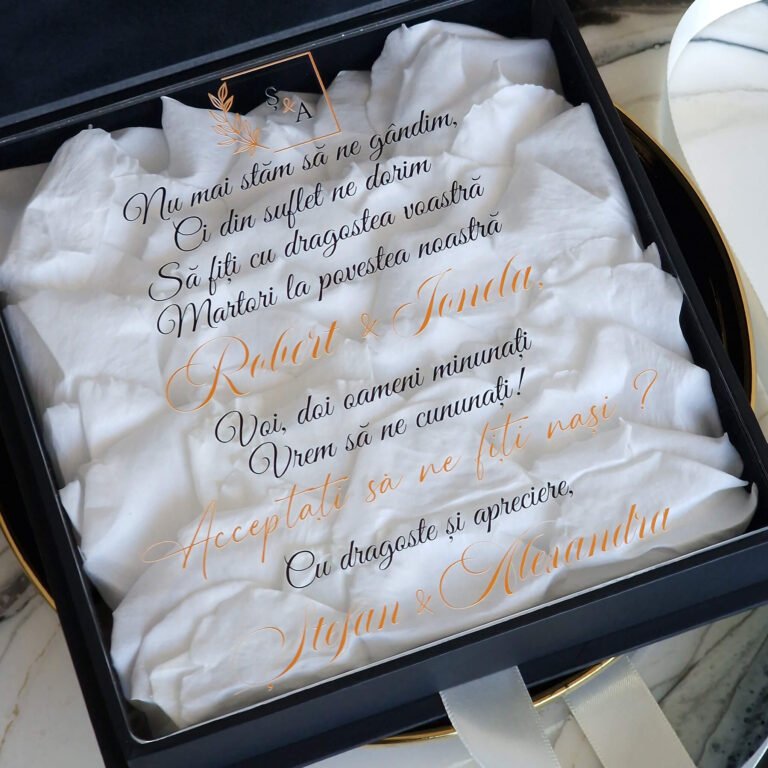 Ș&A
Nu mai stăm să ne gândim,
Ci din suflet ne dorim
Să fiți cu dragostea voastră
Martori la povestea noastră
Robert & Ionela,
Voi, doi oameni minunați
Vrem să ne cununați!
Acceptați să ne fiți nași ?
Cu dragoste și apreciere,
Ștefan & Alexandra